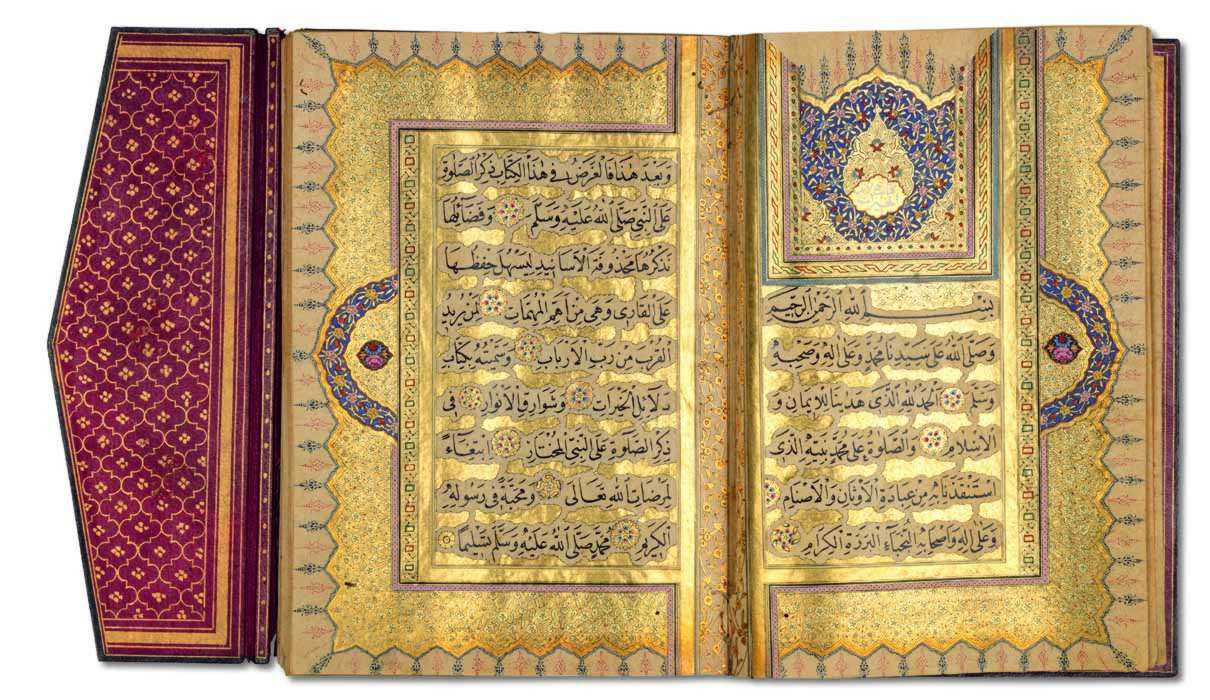 بِسْمِ اللهِ الرَّحْمٰنِ الرَّحِيمِ
وَصَلَّى اللهُ عَلَى سَيِّدِنَا مُحَمَّدٍ وَعَلَى اٰلِهِ وَصَحْبِهِ
وَسَلَّمَ اَلْحَمْدُ لِلّٰهِ الَّذِى هَدٰينَا لِلْاِيمَانِ وَ
الْاِسْلَامِ وَالصَّلٰوةُ عَلَى مُحَمَّدٍ نَبِيِّهِ الَّذِى
اسْتَنْقَذَنَا بِهِ مِنْ عِبَادَةِ الْاَوْثَانِ وَالْاَصْنَامِ
وَعَلَى اٰلِهِ وَاَصْحَابِهِ النُّجَبَاءِ الْبَرَرَةِ الْكِرَامِ
وَبَعْدَ هٰذَا فَالْغَرَضُ فِى هٰذَا الْكِتَابِ ذِكْرُ الصَّلٰوةِ
عَلَى النَّبِىِّ صَلَّى اللهُ عَلَيْهِ وَسَلَّمَ وَفَضَائِلِهَا
نَذْكُرُهَا مَحْذُوفَةَ الْاَسَانِيدِ لِيَسْهُلَ حِفْظُهَا
عَلَى الْقَارِى وَهِىَ مِنْ اَهَمِّ الْمُهِمَّاتِ لِمَنْ يُرِيدُ
الْقُرْبَ مِنْ رَبِّ الْاَرْبَابِ وَسَمَّيْتُهُ بِكِتَابِ
دَلَائِلِ الْخَيْرَاتِ وَشَوَارِقِ الْاَنْوَارِ فِى
ذِكْرِ الصَّلٰوةِ عَلَى النَّبِىِّ الْمُخْتَارِ ابْتِغَاءً
لِمَرْضَاتِ اللهِ تَعَالَى وَمَحَبَّةً فِى رَسُولِهِ
الْكَرِيمِ مُحَمَّدٍ صَلَّى اللهُ عَلَيْهِ وَسَلَّمَ تَسْلِيمًا